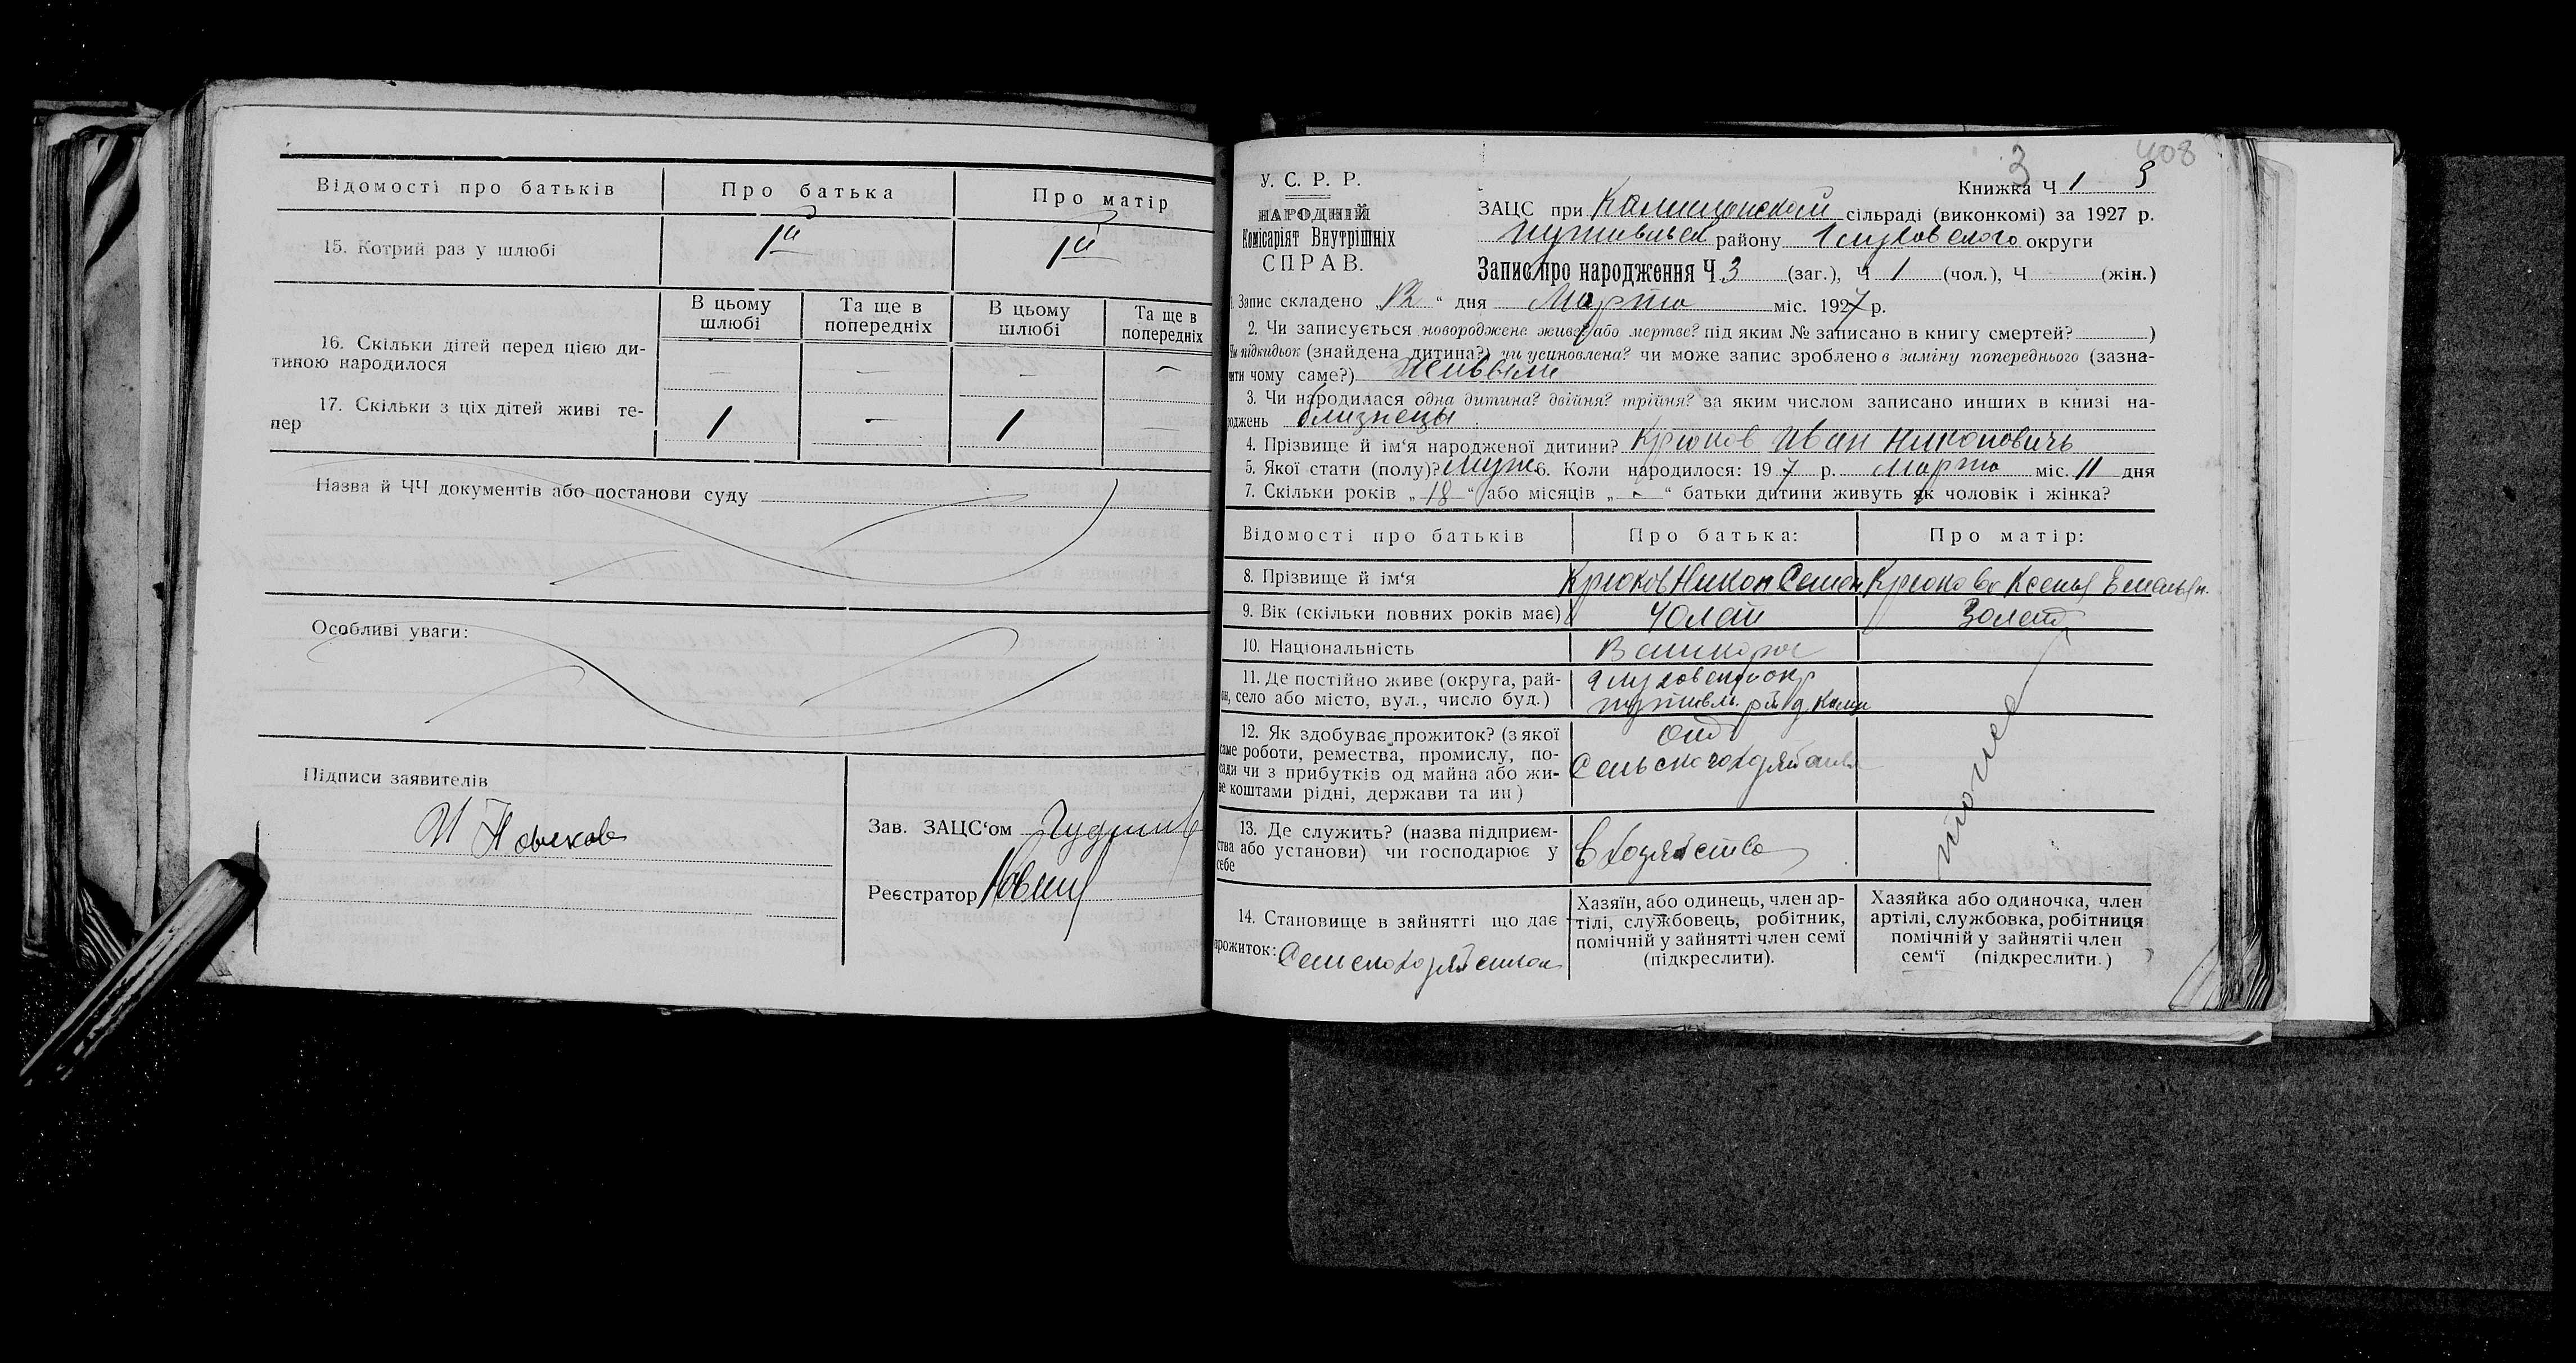 Відомості про батьків
Про батька
Про матір
15. Котрий раз у шлюбі
1й
1й
В цьому шлюбі
Та ще в попередніх
В цьому шлюбі
Та ще в попередніх
16. Скільки дітей перед цією ди-
тиною народилося
— — — —
17. Скільки з ціх дітей живі те-
пер
1 - 1 —
Назва й ЧЧ документів або постанови суду
Особливі уваги:
Підписи заявителів
Зав. ЗАЦС‘ом
Реєстратор
408
3
У. С. Р. Р.
НАРОДНІЙ
Комісаріят Внутрішніх
СПРАВ.
Книжка Ч 1 3
ЗАЦС при сільраді (виконкомі) за 1927 р.
району Глуховского округи
Запис про народження Ч 3 (заг.), Ч 1 (чол.), Ч (жін.)
Запис складено „12“ дня Марта міс. 1927 р.
2. Чи записується новороджене живе? або мертве? під яким № записано в книгу смертей? )
Чи підкидьок (знайдена дитина?) чи усиновлена? чи може запис зроблено в заміну попереднього (зазна-
чити чому саме?)
3. Чи народилася одна дитина? двійня? трійня? за яким числом записано инших в книзі на-
роджень близнецы
4. Прізвище й ім‘я народженої дитини? Крюков Иван Никоновичь
5. Якої стати (полу)? муж 6. Коли народилося: 1927 р. Марта міс. 11 дня
7. Скільки років „18“ або місяців „-“ батьки дитини живуть як чоловік і жінка?
Відомості про батьків
Про батька:
Про матір:
8. Прізвище й ім‘я
Крюков Никон Семен
Крюкова Ксенья Емельян.
9. Вік (скільки повних років має)
40 лет
30 лет
10. Національність
Великорос
11. Де постійно живе (округа, рай-
он, село або місто, вул., число буд.)
Глуховский окр
путивль. рай д. Кали
12. Як здобуває прожиток? (з якої
саме роботи, ремества, промислу, по-
сади чи з прибутків од майна або жи-
ве коштами рідні, держави та ин)
тоже
13. Де служить? (назва підприєм-
ства або установи) чи господарює у
себе
в хозяйстве
14. Становище в зайнятті що дає
прожиток:
Хазяїн, або одинець, член ар-
тілі, службовець, робітник,
помічній у зайнятті член семї
(підкреслити).
Хазяйка або одиночка, член
артілі, службовка, робітниця
помічній у зайнятіі член
сем‘ї (підкреслити.)